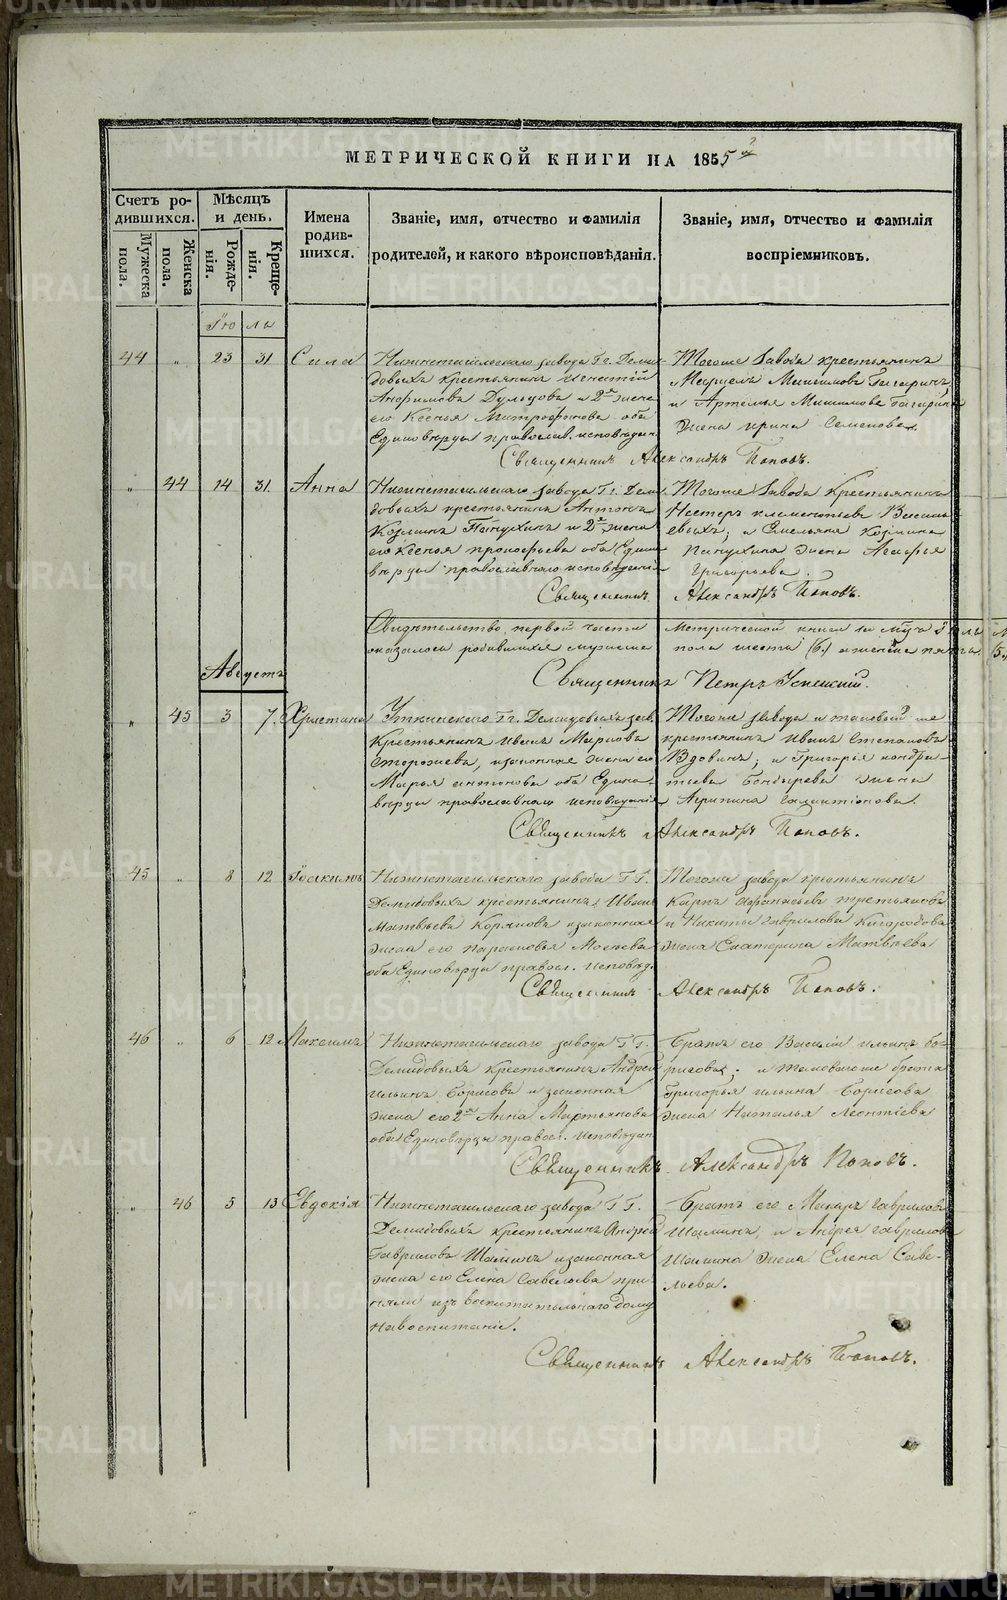 МЕТРИЧЕСКОЙ КНИГИ НА 1855
Счетъ ро-
дившихся.
Мужеска
пола.
Женска
пола.
Мѣсяцъ
и день.
Рожде-
нія.
Креще-
нія.
Имена
родив-
шихся.
Званіе, имя, отчество и фамилія
родителей, и какого вѣроисповѣданія.
Званіе, имя, отчество и фамилія
воспріемниковъ.
Іюль
44 " 23 31 Сила
Нижнетагильскаго завода Гг. Деми-
довыхъ крестьянинъ Игнатій
Анфимовъ Дульцовъ и 2я жена
его Ксенья Митрофанова оба
Единовѣрцы православ. исповѣдан.
Тогоже Завода крестьянинъ
Маркелъ Михаиловъ Гагаринъ
и Артемья Михаилова Гагарина
жена Ирина Семенова.
Священникъ Александръ Поповъ.
" 44 14 31. Анна
Нижнетагильскаго завода Гг. Деми-
довыхъ крестьянинъ Антонъ
Козминъ Пичухинъ и 2я жена
его Ксенья прокофьева оба Едино-
вѣрцы православнаго исповѣданія
Тогоже Завода Крестьянинъ
Нестеръ клементьевъ Василь-
евыхъ, и Емельяна козмина
Пичухина жена Агафья
Григорьева.
Священникъ Александръ Поповъ.
Свидѣтельство первой части метрической книги за мцъ Іюль
оказалось родившихся мужеска пола шесть (6.) а женска пять (5.)
Священникъ Петръ Успенскій.
Августъ
" 45 3 7. Христина
Уткинскаго Гг. Демидовыхъ зав.
Крестьянинъ Иванъ Марковъ
Сторожевъ, и законная жена его
Марья антонова оба Едино-
вѣрцы православнаго исповѣданія
Тогоже завода и таковой же
крестьянинъ Иванъ Степановъ
Вдовинъ; и Григорья кондра-
тьева Бондырева жена
Агрипина Галактіонова.
Священникъ Александръ Поповъ.
45 " 8 12 Іоакимъ
Нижнетагильскаго завода Г.Г.
Демидовыхъ крестьянинъ Иванъ
Матвѣевъ Коряковъ и законная
жена его Парасковья Мокѣева
оба Единовѣрцы правосл. исповѣд.
Тогоже завода крестьянинъ
Карпъ Афанасьевъ третьяковъ
и Никиты Гаврилова Кайгородова
жена Екатерина Матвѣева
Священникъ Александръ Поповъ.
46 " 6 12 Максимъ
Нижнетагильскаго завода Г.Г.
Демидовыхъ крестьянинъ Андрей
Ильинъ Борисовъ и законная
жена его 2я Анна Мартьянова
оба Единовѣрцы правосл. исповѣдан.
Братъ его Василій ильинъ Бо-
рисовъ; и таковагоже брата
Григорья ильина Борисова
жена Наталья Леонтіева
Священникъ Александръ Поповъ.
" 46 5 13 Евдокія
Нижнетагильскаго завода Г.Г.
Демидовыхъ крестьянинъ Андрей
Гавриловъ Шаминъ и законная
жена его Елена Савельева при-
няли изъ воспитательнаго дому
на воспитаніе.
Братъ его Макаръ Гавриловъ
Шаминъ, и Андрея гаврилова
Шамина жена Елена Саве-
льева.
Священникъ Александръ Поповъ.
METRIKI.GASO-URAL.RU